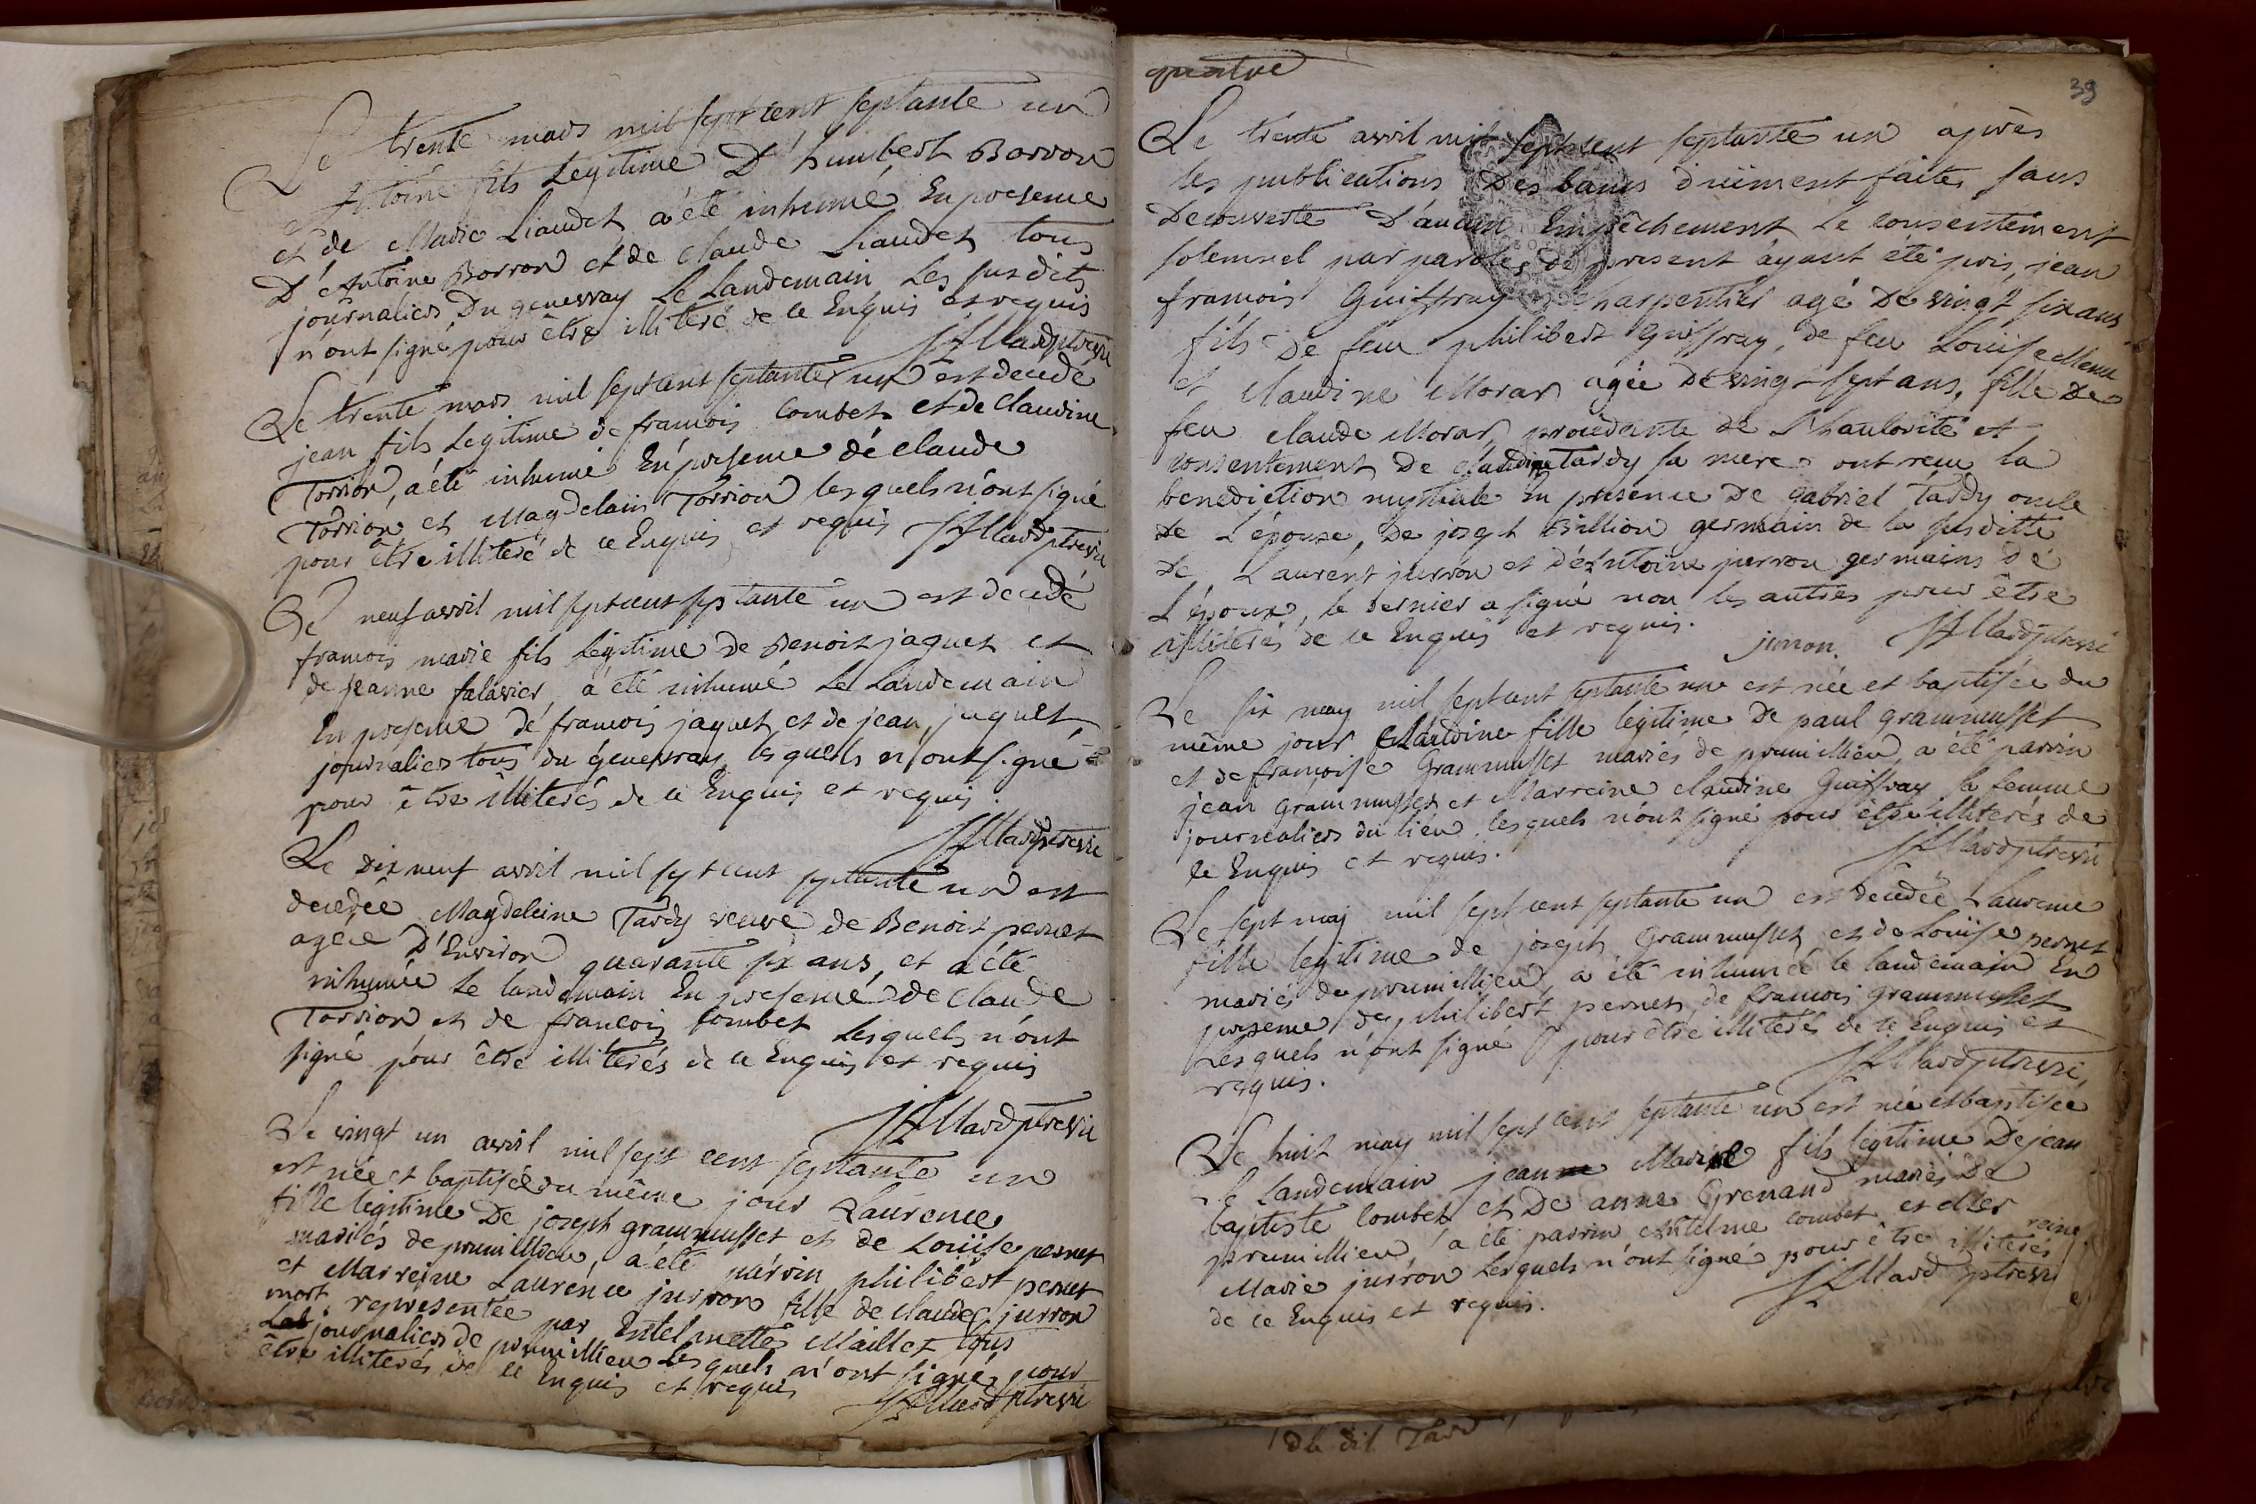 Le trente mars mil sept cent septante un
Antoine fils Legitime D'humbert Borron
et de Marie Liaudet a été inhumé En presence
D'Antoine Borron et de Claude Liaudet tous
journaliers Du genevray Le Landemain Les susdits
n'ont signé pour être illiteré de ce Enquis et requis
Le trente mars mil sept cent septante un est decedé
jean fils Legitime de francois Combet et de Claudine
Torrion, a été inhumé En presence de Claude
Torrion et Magdelain Torrion lesquels n'ont signé
pour être illiteré de ce Enquis et requis
Le neuf avril mil sept cent septante un est decedé
francois marie fils Légitime de Benoit jaquet et
de jeanne falavier, a été inhumé Le Landemain
En presence de francois jaquet et de jean jaquet,
journaliers tous du genevray lesquels n'ont signé
pour être illiterés de ce Enquis et requis.
Le dix neuf avril mil sept cent septante un est
decedée Magdeleine Tardy veuve de Benoit pernet
agée D'Environ quarante six ans, et a été
inhumée Le landemain En presence de Claude
Torrion et de francois Combet Lesquels n'ont
signé pour être illiterés de ce Enquis et requis
Le vingt un avril mil sept cent septante un
est née et baptisée du même jour Laurence
fille legitime De joseph grammusset et de Louise pernet
mariés de prumillieu, a été parrin philibert pernet
et Marreine Laurence jurron fille de claude jurron
mort representée par Entelmette Maillet tous
journaliers de prumillieu Lesquels n'ont signé pour
être illiterés de ce Enquis et requis
quatre
39
Le trente avril mil sept cent septante un après
les publications Des bans duement faites sans
Decouverte D'aucun Empêchement Le consentement
solemnel par paroles de present ayant été pris, jean
francois Guiffray charpentier agé De vingt six ans
fils De feu philibert Guiffray, de feu Louise
et Claudine Morar agée De vingt sept ans, fille De
feu Claude Morar, procedante de L'hautorité et
consentement De claudine Tardy sa mere ont recu la
benediction nuptiale En presence De gabriel Tardy oncle
de L'épouse, De joseph Billion germain de la susditte
de Laurent jurron et d'Antoine jurron germains de
L'époux, le dernier a signé non les autres pour être
illiterés de ce Enquis et requis.
jurron.
Le six may mil sept cent septante un est née et baptisée du
même jour Claudine fille legitime De paul grammusset
et de francoise Grammusset mariés de prumillieu, a été parrin
jean grammusset et Marreine claudine Guiffray sa femme
journaliers du lieu, lesquels n'ont signé pour être illiterés de
ce Enquis et requis.
Le sept may mil sept cent septante un est decedée Laurence
fille legitime de joseph Grammusset et de Louise pernet
mariés de prumillieu, a été inhumée le landemain En
presence de philibert pernet, de francois grammusset
Lesquels n'ont signé pour être illiterés de ce Enquis et
requis.
Le huit may mil sept cent septante un est née et baptisée
Le Landemain jean Marie fils legitime De jean
baptiste Combet et De anne Grenand mariés De
prumillieu, a été parrin Antelme combet et Mar reine
Marie jurron Lesquels n'ont signé pour être illiterés
de ce Enquis et requis.